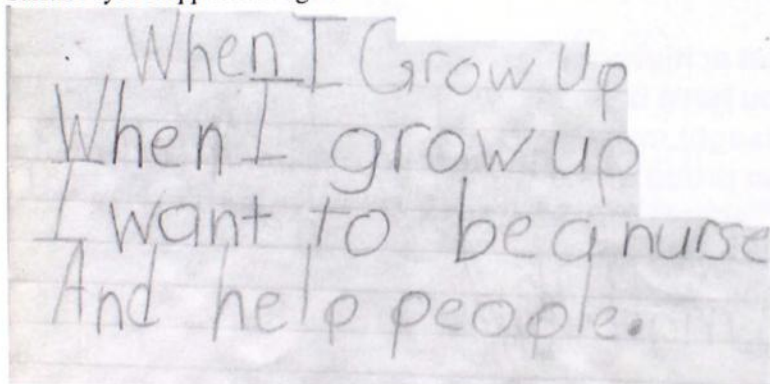 When I Grow Up
When I grow up
I want to be a nurse
And help people.